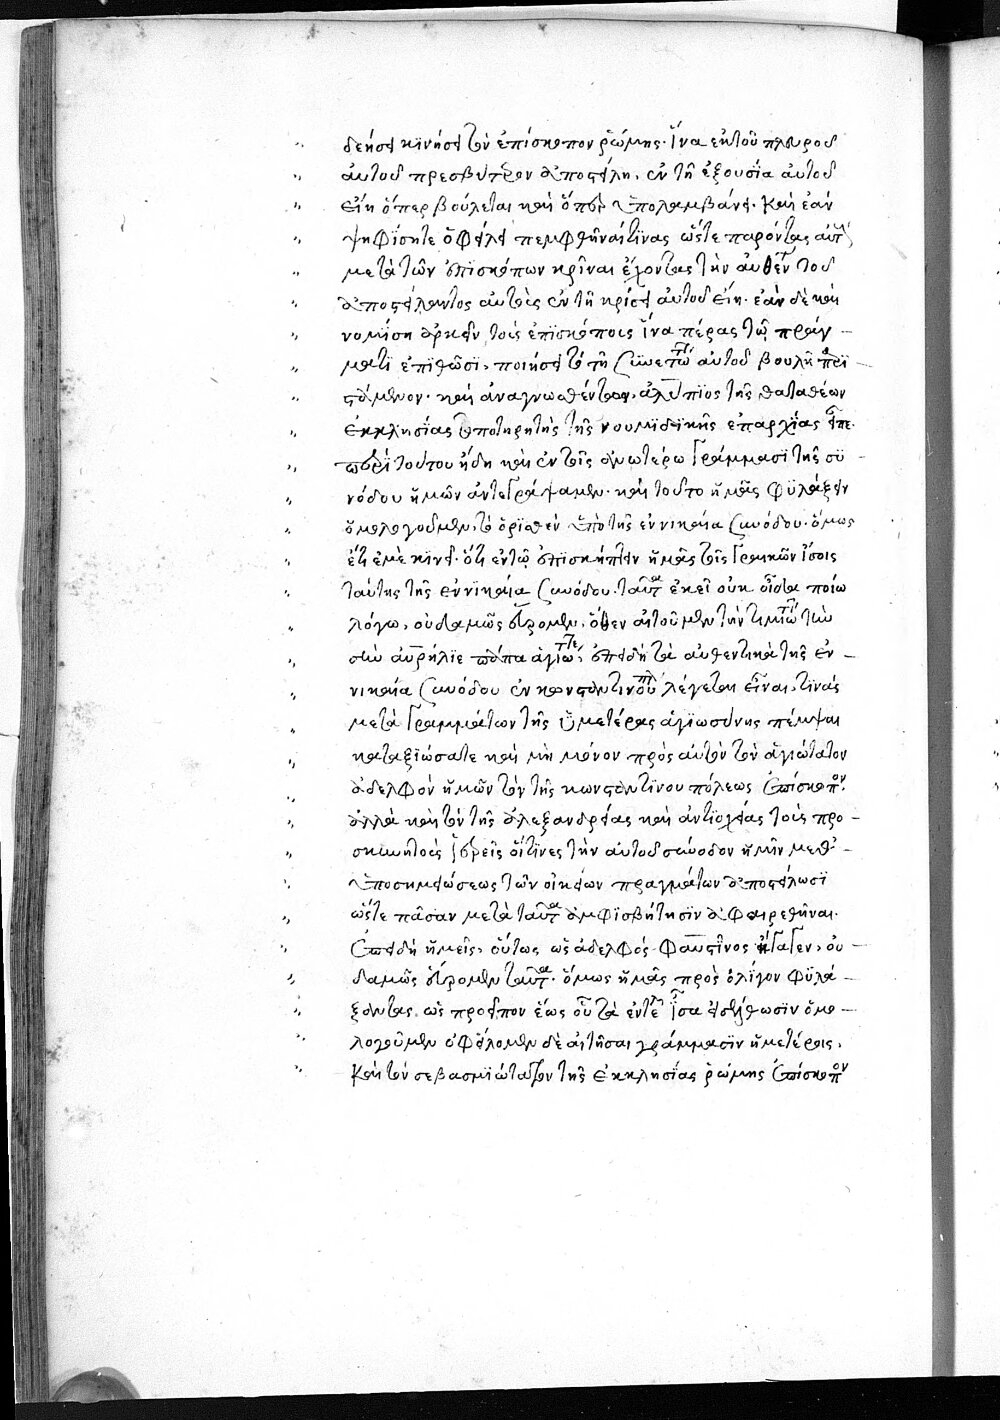 δεήσει κινήσει τὸν ἐπίσκοπον ῥώμης· ἵνα ἐκ τοῦ πλευροῦ
αὐτοῦ πρεσβύτερον ἀποστείλη, ἐν τῆ ἐξουσία αὐτοῦ
εἴη ὅπερ βούλεται καὶ ὅπερ ὑπολαμβάνει· Καὶ ἐὰν
ψηφΐσητε ὀφείλει πεμφθῆναί τϊνας ὥστε παρόντας αὐτ
μετὰ τῶν ἐπϊσκόπων κρῖναι ἔχοντας τὴν αὐθεντ τοῦ
ἀποστείλαντος αὐτοὺς ἐν τῆ κρίσει αὐτοῦ εἴη· ἐὰν δὲ καὶ
νομίση ἀρκεῖν τοῖς ἐπϊσκόποις ἵνα πέρας τῶ πράγ –
ματϊ ἐπϊθῶσϊ, ποιήσει τὸ τῆ συνετωτ αὐτοῦ βουλῆ παρϊ –
στάμενον· καὶ ἀναγνωσθέντων, ἀλύπϊος τῆς θαγασθέων
ἐκκλησΐας τοποτηρητὴς τῆς νουμϊδϊκῆς ἐπαρχΐας εἶπε·
περὶ τούτου ἤδη καὶ ἐν τοῖς ἀνωτέρω γράμμασϊ τῆς συ –
νόδου ἡμῶν ἀντεγράψαμεν· καὶ τοῦτο ἡμᾶς φϋλάξειν
ὁμολογοῦμεν, τὸ ὁρισθὲν ὑπὸ τῆς ἐν νικαία συνόδου· ὅμως
ἔτι ἐμὲ κϊνεῖ· ὅτι ἐν τῶ ἐπϊσκήπτειν ἡμᾶς τοῖς γραικῶν ἴσοις
ταύτης τῆς ἐν νϊκαία συνόδου· ταῦτα ἐκεῖ οὐκ οἶδα ποίω
λόγω, οὐδαμῶς εὕρομεν, ὅθεν αἰτοῦμεν τὴν τιμιωτ τὴν
σὴν αὐρήλϊε πάπα ἁγιωτε, ἐπειδὴ τὰ αὐθεντικὰ τῆς ἐν –
νικαία συνόδου ἐν κωνσταντινουπλ λέγεται εἶναι, τϊνὰς
μετὰ γραμμάτων τῆς ὑμετέρας ἁγϊωσύνης πέμψαι
καταξϊώσατε καὶ μὴ μόνον πρὸς αὐτὸν τὸν ἁγιώτατον
ἀδελφὸν ἡμῶν τὸν τῆς κωνσταντίνου πόλεως ἐπίσκοπον·
ἀλλὰ καὶ τὸν τῆς ἀλεξανδρείας καὶ ἀντϊοχείας τοὺς προ –
σκυνητοὺς ἱερεῖς οἵτϊνες τὴν αὐτοῦ σύνοδον ἡμῖν μεθ' –
ὑποσημειώσεως τῶν οἰκείων πραγμάτων ἀποστείλωσϊ
ὥστε πᾶσαν μετὰ ταῦτα ἀμφϊσβήτησϊν ἀφαιρεθῆναι·
Ἐπειδὴ ἡμεῖς, οὕτως ὡς ἀδελφὸς φαυστῖνος ἤγαγεν, οὐ –
δαμῶς εὕρομεν ταῦτα· ὅμως ἡμᾶς πρὸς ὀλίγον φϋλά –
ξοντας, ὡς προεῖπον ἕως οὗ τὰ ἐντελῆ ἴσα εἰσέλθωσϊν ὁμο –
λογοῦμεν ὀφείλομεν δὲ αἰτῆσαι γράμμασϊν ἡμετέροις,
Καὶ τὸν σεβασμϊώτατον τῆς ἐκκλησΐας ῥώμης ἐπίσκοπον